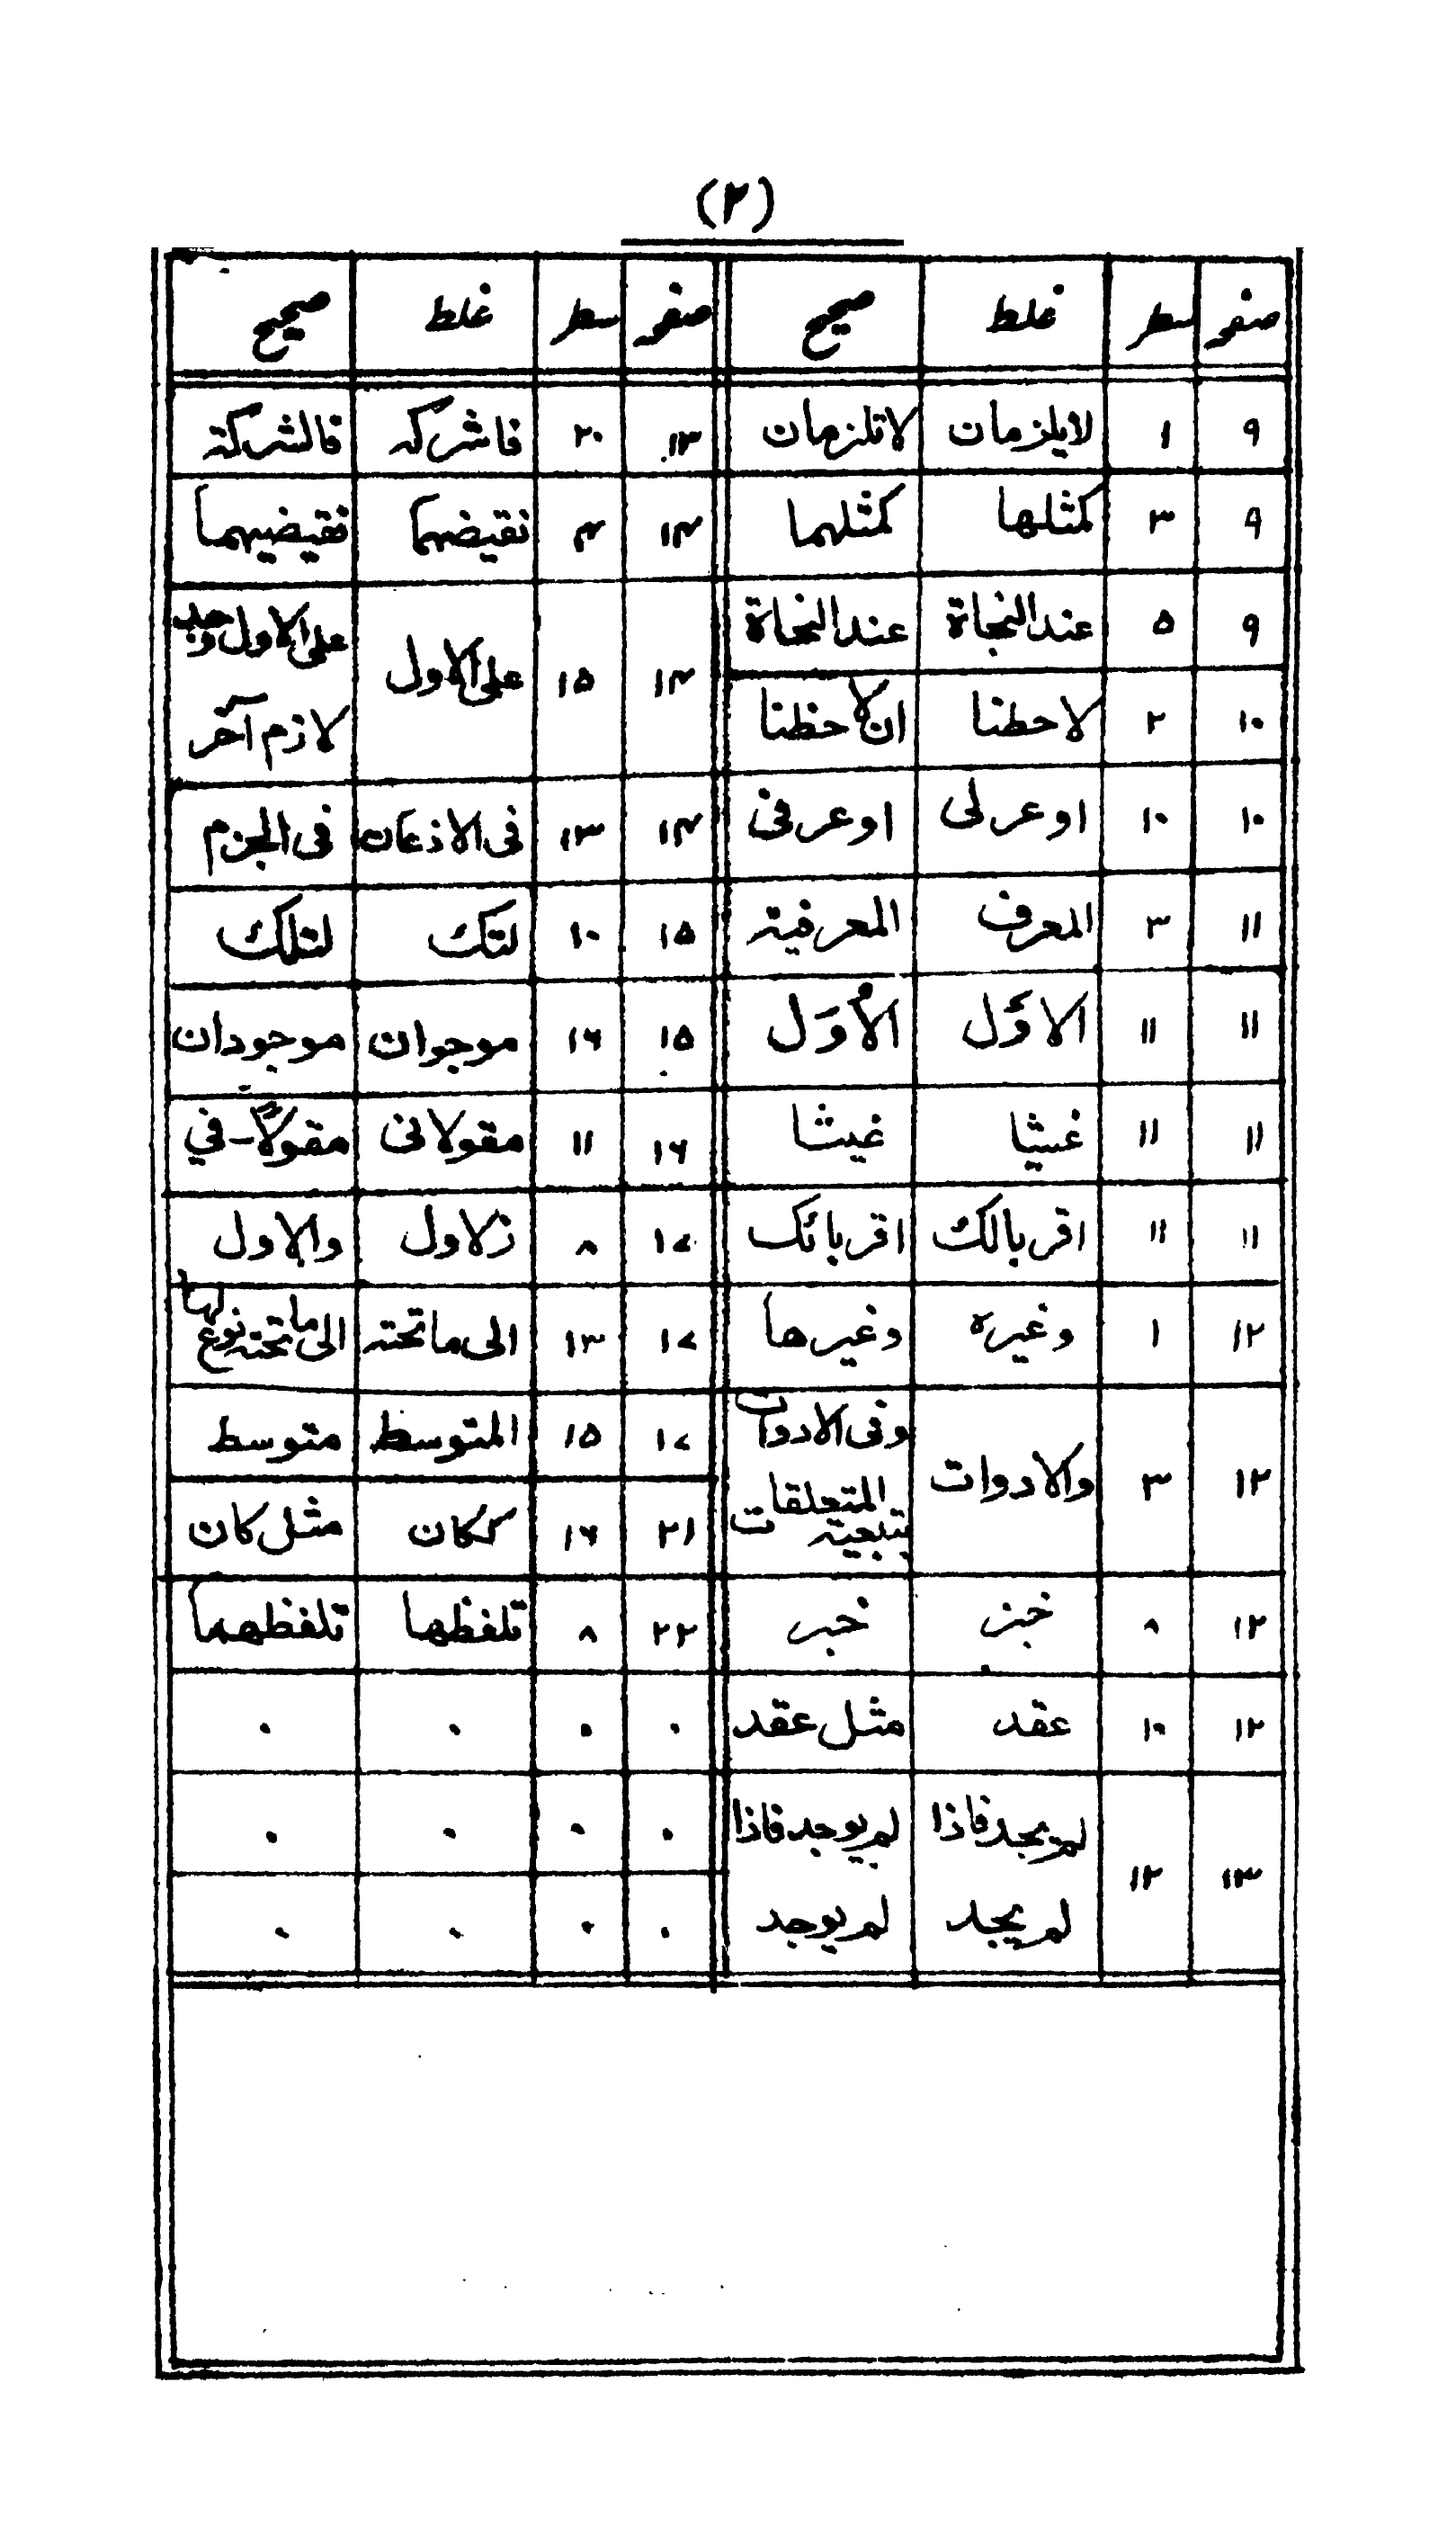 (٢)
صفحہ سطر غلط صحیح صفحہ سطر غلط صحیح
٩ ١ لايلزمان لا تلزمان
٩ ٣ كمثلها كمثلهما
٩ ۵ عند النجاة عند النحاة
١٠ ٢ لا حطنا ان لا حظنا
١٠ ١٠ او عر لى او عر فى
١١ ٣ المعرف المعرفية
١١ ١١ الاوَّل الأُوَل
١١ ١١ غثيا غيثا
١١ ١١ اقر بالك اقر بائك
١٢ ١ وغيره وغيرها
١٢ ٣ والادوات وفى الادوات
المتعلقات
بتبعية
١٢ ٨ خبز خبر
١٢ ١٠ عقد مثل عقد
١٣ ١٢ لم يجد فاذا لم يوجد فاذا
لم يجد لم يوجد
١٣ ٢٠ فاشركه فالشركة
١۴ ۴ نقيضهما نقيضيهما
١۴ ١۵ على الاول على الاول وجب
لازم آخر
١۴ ١٣ فى الاذعان فى الجزم
١۵ ١٠ لتك لتلك
١۵ ١۶ موجوان موجودان
١۶ ١١ مقولا فى مقولاً - في
١٧ ٨ زلاول والاول
١٧ ١٣ الى ما تحته الى ما تحته نوع لها
١٧ ١۵ المتوسط متوسط
٢١ ١۶ ككان مثل كان
٢٢ ٨ تلفظها تلفظهما
٠ ٠ ٠ ٠
٠ ٠ ٠ ٠
٠ ٠ ٠ ٠